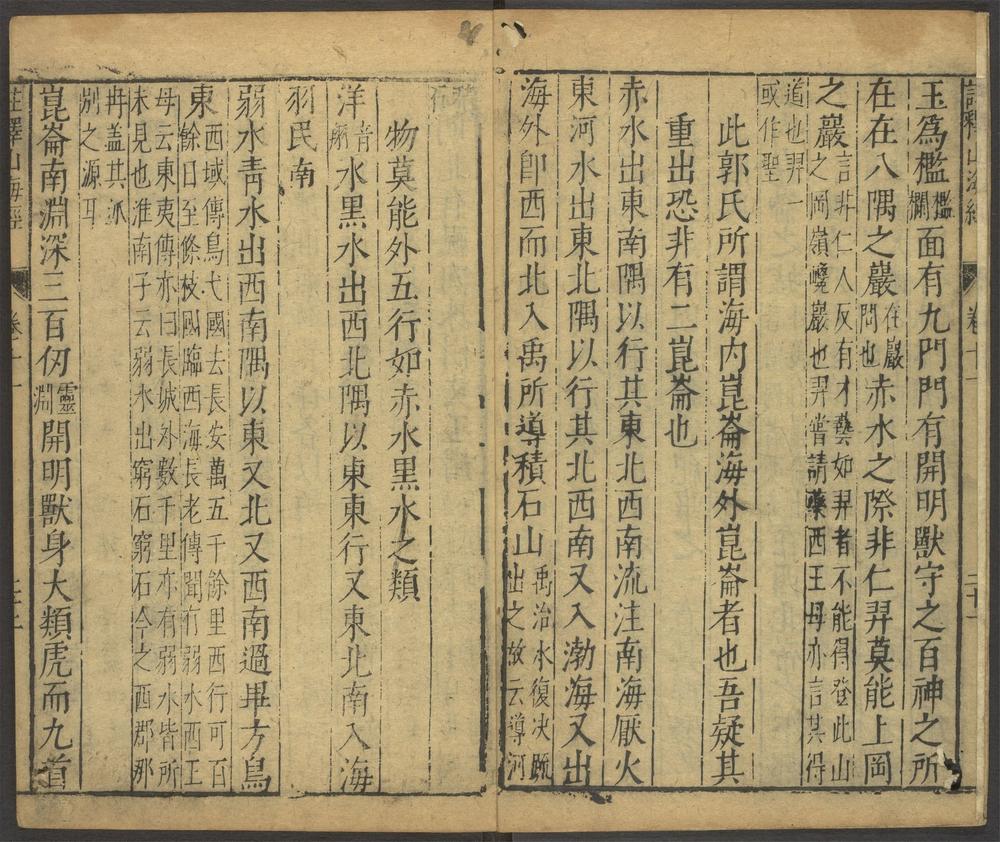 玉為檻檻欄面有九門門有開明獸守之百神之所
在在八隅之巖在巖間也赤水之際非仁羿莫能上岡
之巖言非仁人反有才藝如羿者不能得登此山
之岡嶺巉巖也羿嘗請藥西王母亦言其得
道也羿一
或作聖
此郭氏所謂海內崑崙海外崑崙者也吾疑其
重出恐非有二崑崙也
赤水出東南隅以行其東北西南流注南海厭火
東河水出東北隅以行其北西南又入渤海又出
海外卽西而北入禹所導積石山禹治水復决䟽
出之故云導河
積石
物莫能外五行如赤水黑水之類
洋音翔水黑水出西北隅以東東行又東北南入海
羽民南
弱水靑水出西南隅以東又北又西南過畢方鳥
東西域傳烏弋國去長安萬五千餘里西行可百
餘日至條枝國臨西海長老傳聞有弱水西王
母云東夷傳亦曰長城外數千里亦有弱水皆所
未見也淮南子云弱水出窮石窮石今之西郡那
冉蓋其派
別之源耳
崑崙南淵深三百仞靈淵開明獸身大類虎而九首
註釋山海經
卷十一